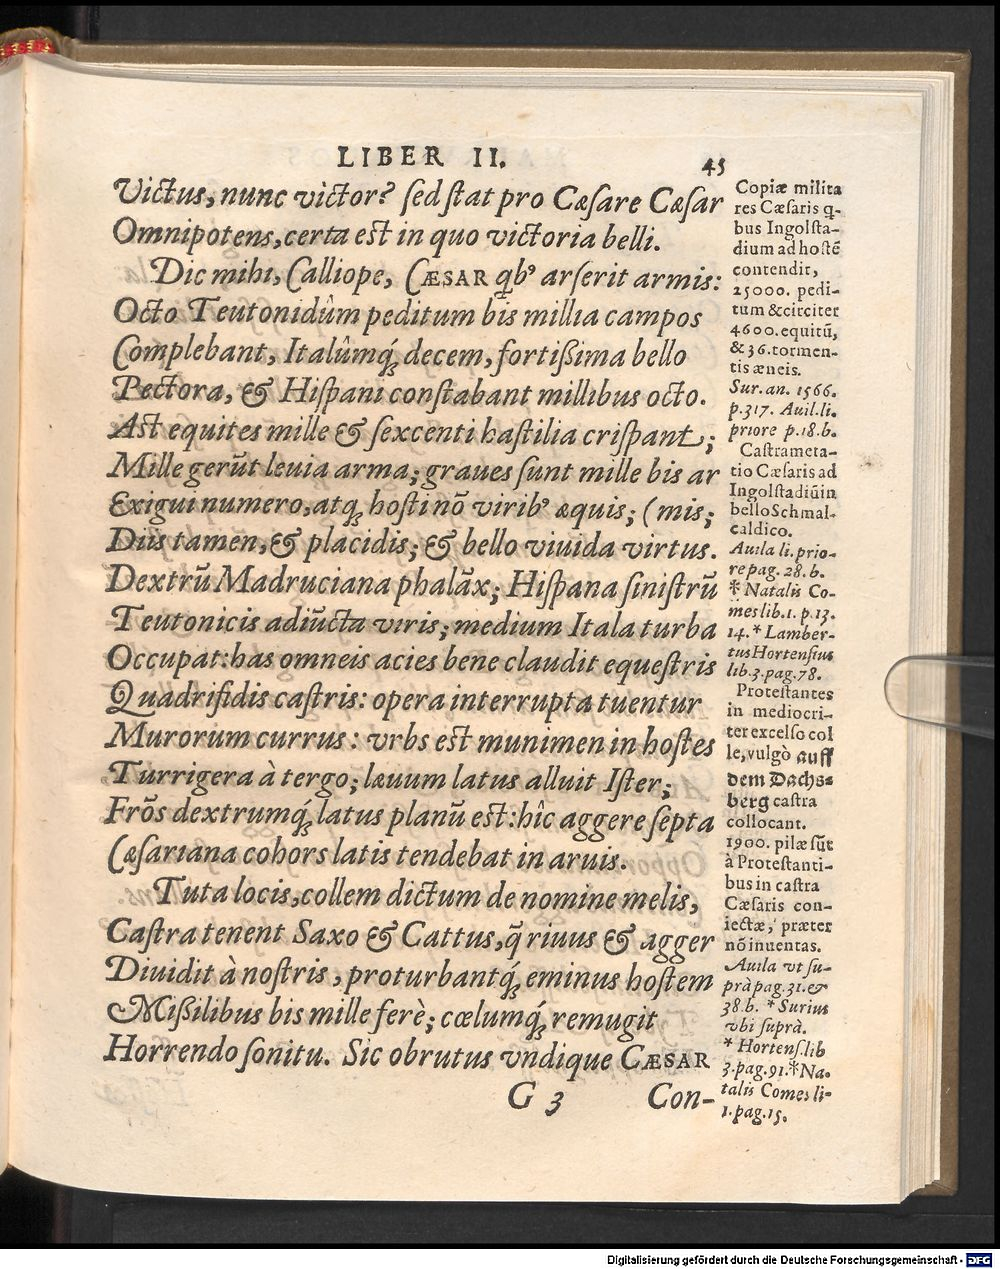 LIBER II. 45
Victus, nunc victor? sed stat pro Cæsare Cæsar
Omnipotens, certa est in quo victoria belli.
Dic mihi, Calliope, CÆSAR qb⁹ arserit armis:
Octo Teutonidûm peditum bis millia campos
Complebant, Italûmq́; decem, fortißima bello
Pectora, & Hispani constabant millibus octo.
Ast equites mille & sexcenti hastilia crispant;
Mille gerũt leuia arma; graues sunt mille bis ar
Exigui numero, atq; hosti nõ virib⁹ æquis; (mis;
Diis tamen, & placidis; & bello viuida virtus.
Dextrũ Madruciana phalãx; Hispana sinistrũ
Teutonicis adiũcta viris; medium Itala turba
Occupat: has omneis acies bene claudit equestris
Quadrifidis castris: opera interrupta tuentur
Murorum currus: vrbs est munimen in hostes
Turrigera à tergo; læuum latus alluit Ister;
Frõs dextrumq́; latus planũ est: hîc aggere septa
Cæsariana cohors latis tendebat in aruis.
Tuta locis, collem dictum de nomine melis,
Castra tenent Saxo & Cattus, q̃ riuus & agger
Diuidit à nostris, proturbantq́; eminus hostem
Mißilibus bis mille ferè; cœlumq́; remugit
Horrendo sonitu. Sic obrutus vndique CÆSAR
G 3 Con-
Copiæ milita
res Cæsaris q-
bus Ingolsta-
dium ad hostẽ
contendit,
25000. pedi-
tum & circiter
4600. equitũ,
& 36. tormen-
tis æneis.
Sur. an. 1566.
p. 317. Auil. li.
priore p. 18. b.
Castrameta-
tio Cæsaris ad
Ingolstadiũ in
bello Schmal-
caldico.
Auila li. prio-
re pag. 28. b.
* Natalis Co-
mes lib. 1. p. 13.
14. * Lamber-
tus Hortensius
lib. 3. pag. 78.
Protestantes
in mediocri-
ter excelso col
le, vulgò auff
dem Dachs-
berg castra
collocant.
1900. pilæ sũt
à Protestanti-
bus in castra
Cæsaris con-
iectæ, præter
nõ inuentas.
Auila vt su-
prà pag. 31. &
38. b. * Surius
vbi suprà.
* Hortens. lib
3. pag. 91. * Na-
talis Comes li-
1. pag. 15.
Digitalisierung gefördert durch die Deutsche Forschungsgemeinschaft - DFG